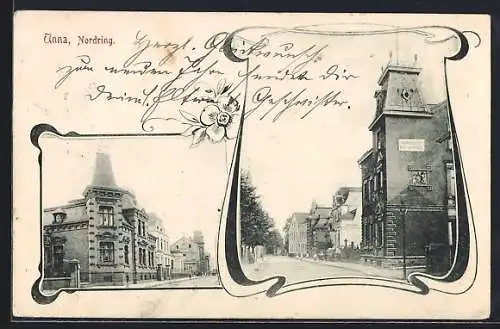 Unna, Nordring.
Herzl. Glückwunsch
zum neuen Jahre sendet dir
Deine
Geschwister.